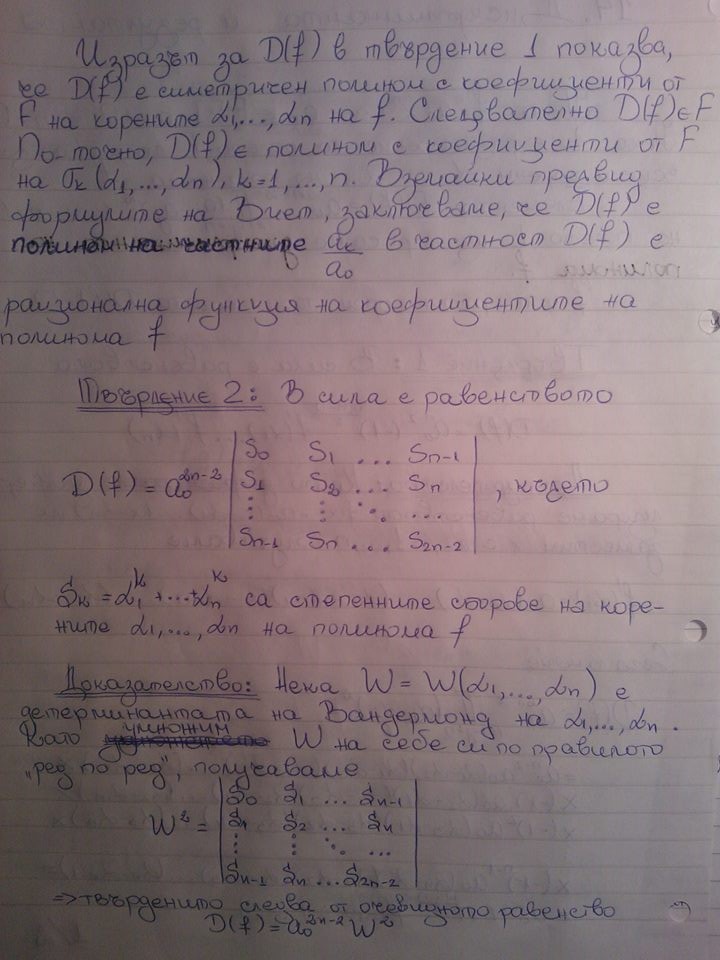 Изразът за D(f) в твърдение 1 показва,
че D(f) е симетричен полином с коефициенти от
F на корените α₁,...,αₙ на f. Следователно D(f)∈F
По-точно, D(f) е полином с коефициенти от F
на σₖ(α₁,...,αₙ), k=1,...,n. Вземайки предвид
формулите на Виет, заключваме, че D(f) е
полином на частните aₖ/a₀ в частност D(f) е
рационална функция на коефициентите на
полинома f
Твърдение 2: В сила е равенството
D(f) = a₀²ⁿ⁻² | S₀ S₁ ... Sₙ₋₁ |, където
| S₁ S₂ ... Sₙ |
| ⋮ ⋮ ⋱ ... |
| Sₙ₋₁ Sₙ ... S₂ₙ₋₂ |
Sₖ = α₁ᵏ +...+ αₙᵏ са степенните сборове на коре-
ните α₁,...,αₙ на полинома f
Доказателство: Нека W = W(α₁,...,αₙ) е
детерминантата на Вандермонд на α₁,...,αₙ.
Като умножим W на себе си по правилото
„ред по ред", получаваме
W² = | S₀ S₁ ... Sₙ₋₁ |
| S₁ S₂ ... Sₙ |
| ⋮ ⋮ ⋱ ... |
| Sₙ₋₁ Sₙ ... S₂ₙ₋₂ |
=> твърдението следва от очевидното равенство
D(f) = a₀²ⁿ⁻² W²